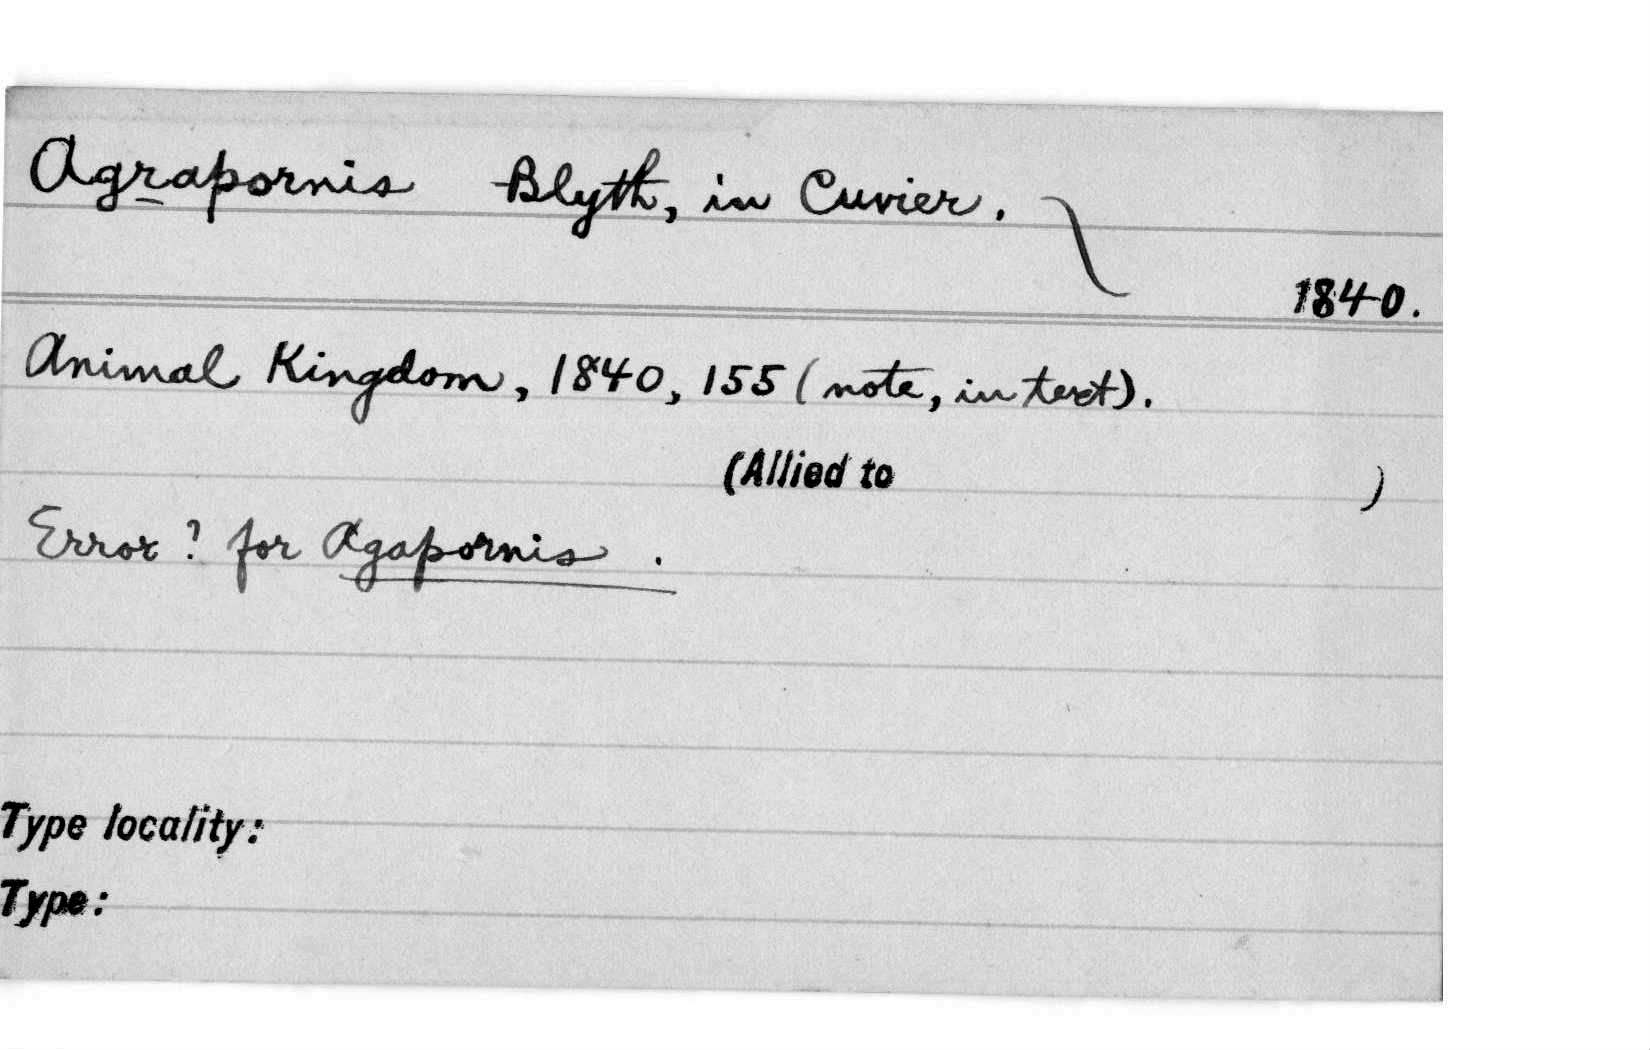 Agrapornis Blyth, in Cuvier.
1840.
Animal Kingdom, 1840, 155 (note, in text).
(Allied to )
Error? for Agapornis.
Type locality:
Type: